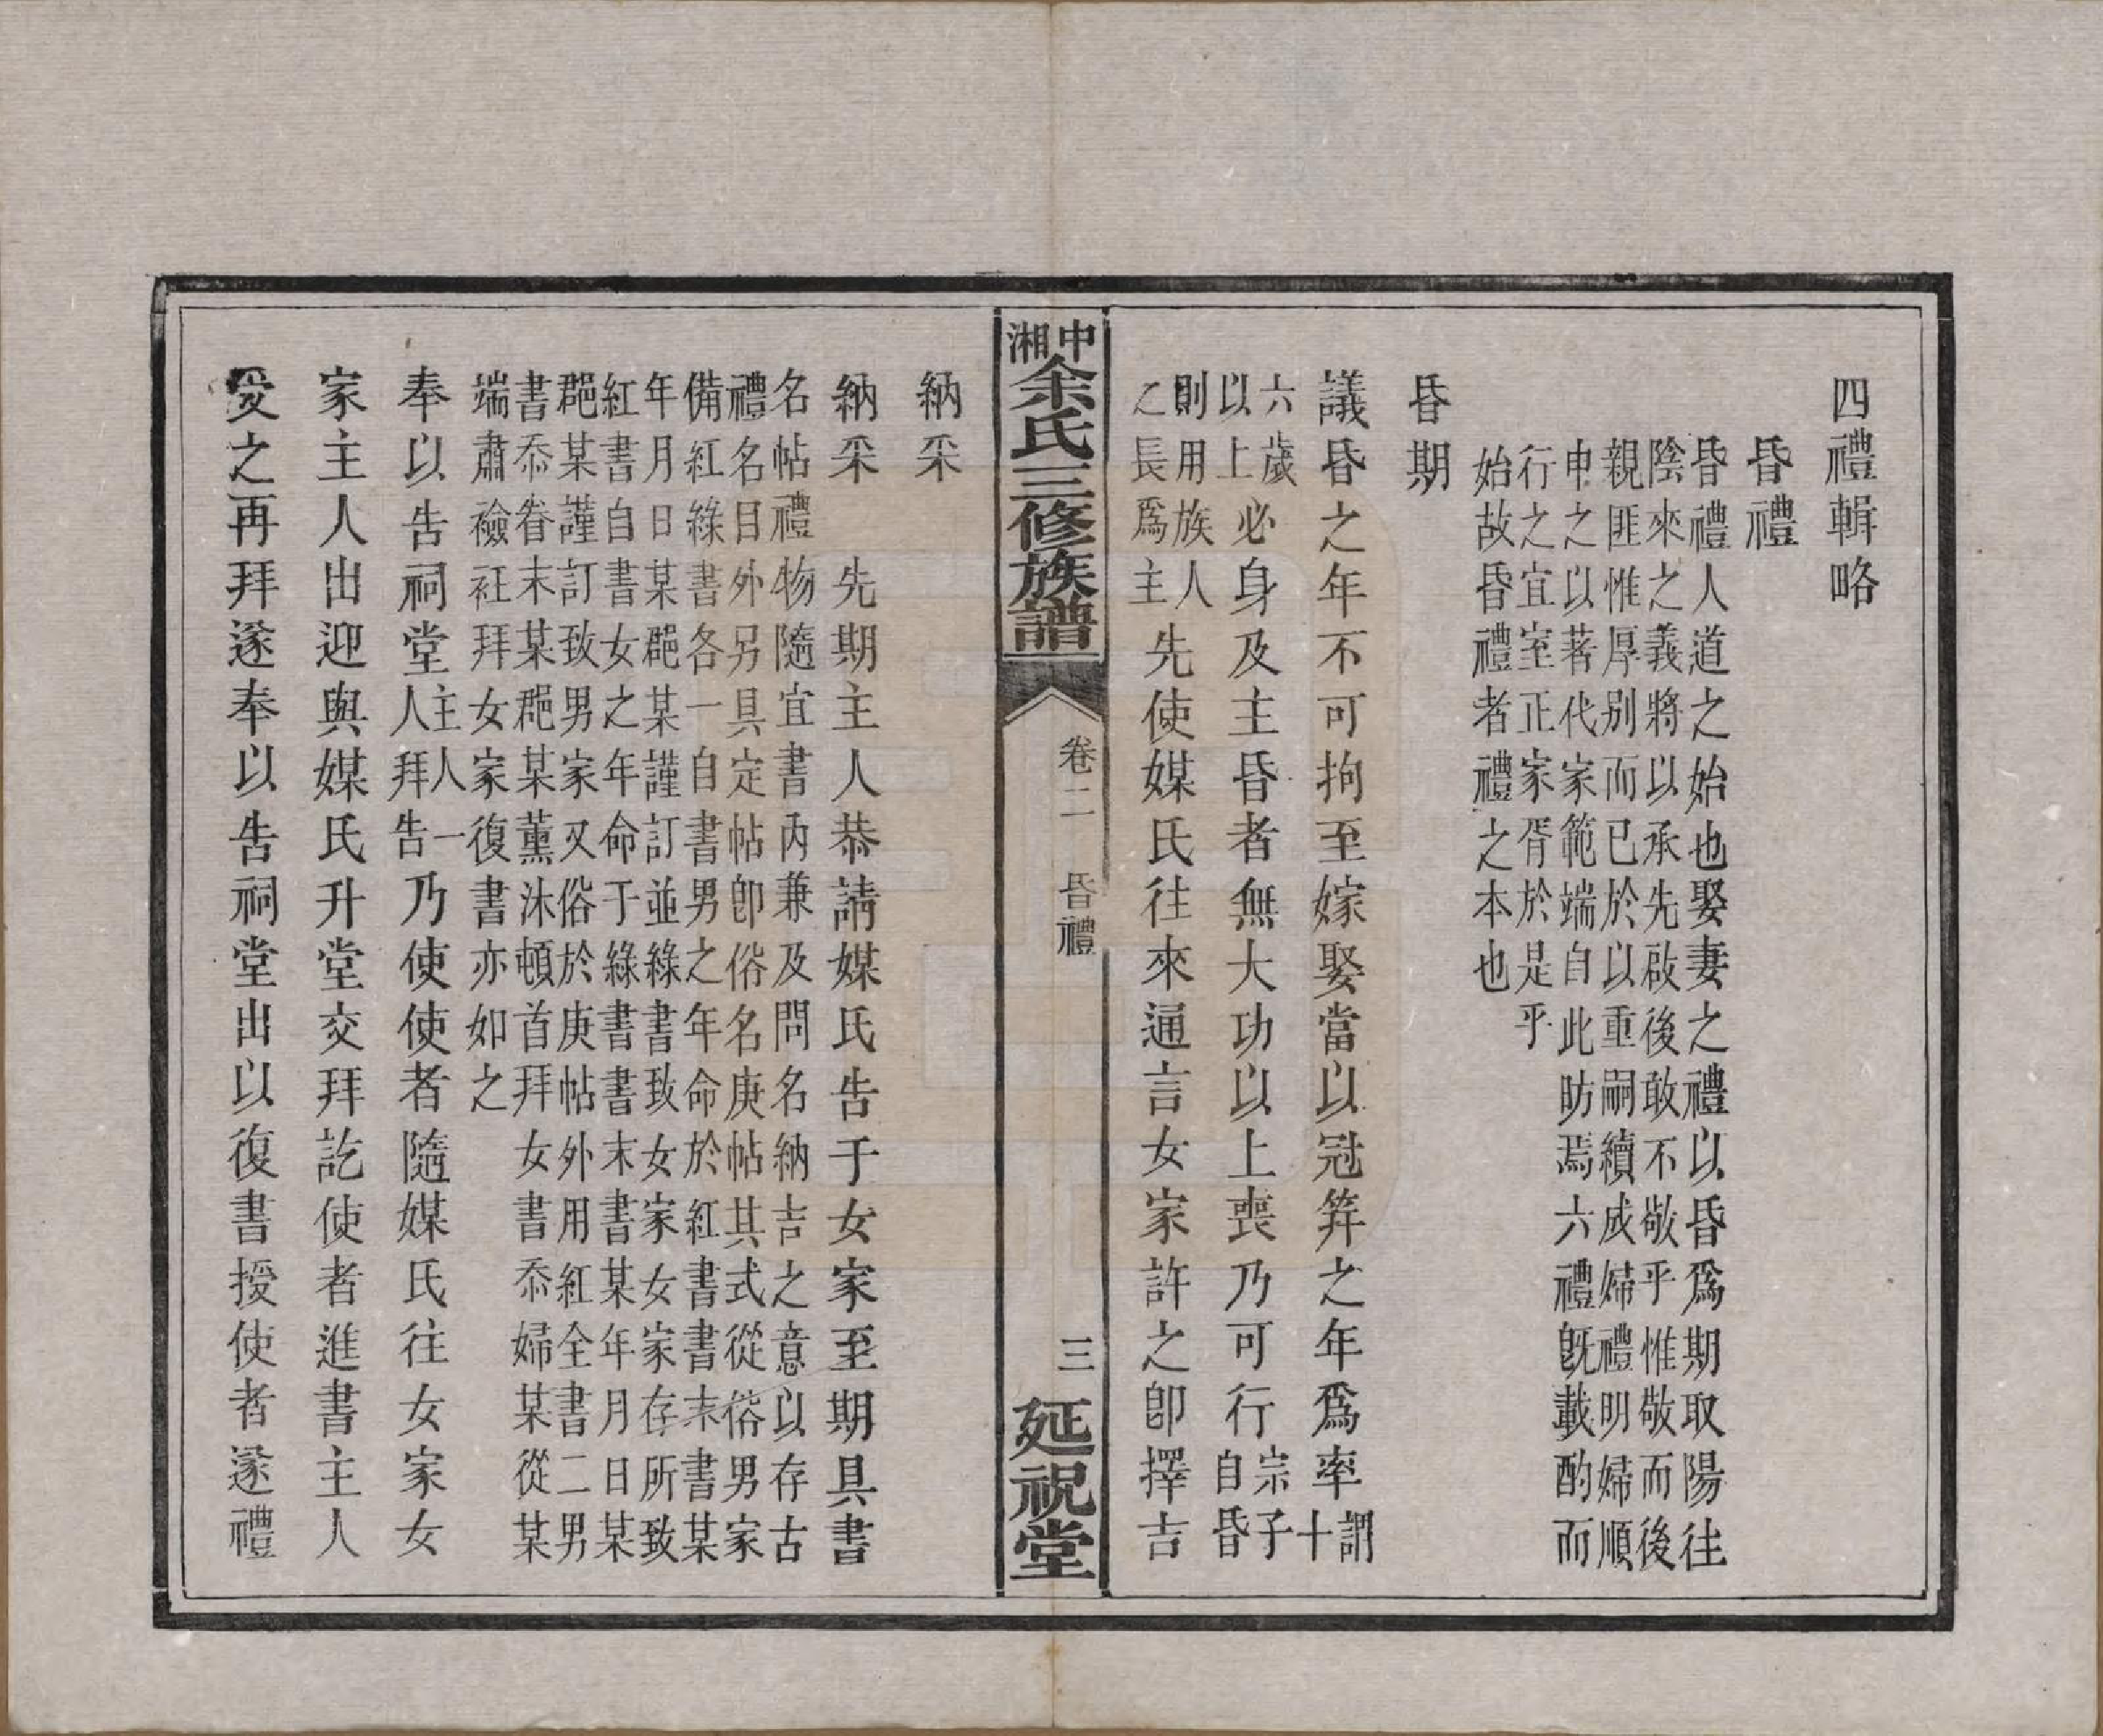 四禮輯略
昏禮
昏禮人道之始也娶妻之禮以昏爲期取陽往
陰來之義將以承先啟後敢不敬乎惟敬而後
親匪惟厚別而已於以重嗣續成婦禮明婦順
申之以著代家範端自此昉焉六禮旣載酌而
行之宜室正家胥於是乎
始故昏禮者禮之本也
昏期
議昏之年不可拘至嫁娶當以冠筓之年爲率謂十
六歲以上必身及主昏者無大功以上喪乃可行宗子自昏
則用族人之長爲主先使媒氏往來通言女家許之卽擇吉
中湘余氏三修族譜
卷二
昏禮
三
延祝堂
納采
納采 先期主人恭請媒氏告于女家至期具書
名帖禮物隨宜書內兼及問名納吉之意以存古
禮名目外另具定帖卽俗名庚帖其式從俗男家
備紅綠書各一自書男之年命於紅書書末書某
年月日某郡某謹訂並綠書致女家女家存所致
紅書自書女之年命于綠書書末書某年月日某
郡某謹訂致男家又俗於庚帖外用紅全書二男
書忝眷末某郡某薰沐頓首拜女書忝婦某從某
端肅襝衽拜女家復書亦如之
奉以告祠堂主人一人拜告乃使使者隨媒氏往女家女
家主人出迎與媒氏升堂交拜訖使者進書主人
受之再拜遂奉以告祠堂出以復書授使者遂禮